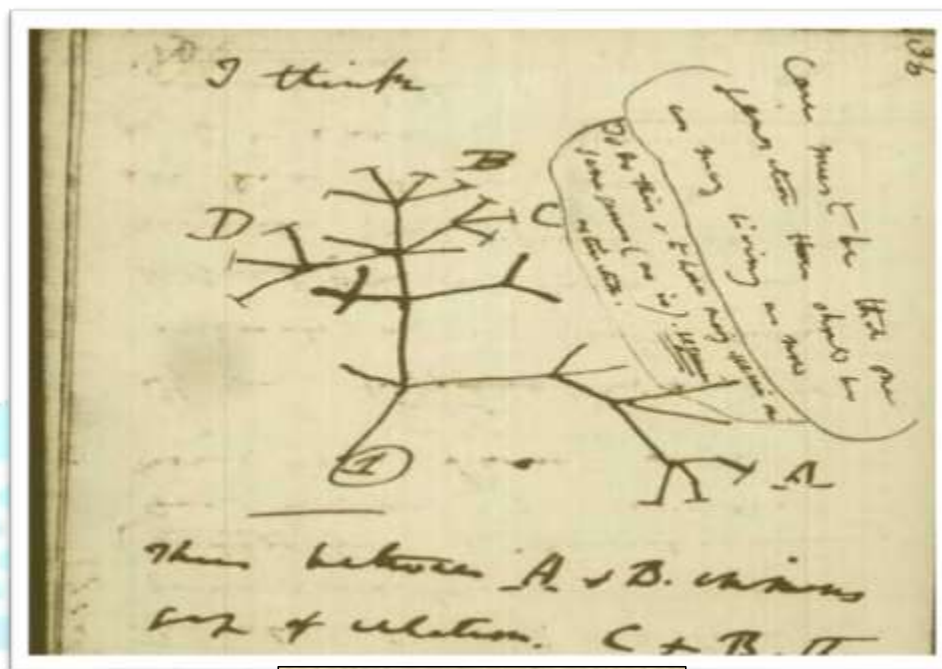 I think
36
Case must be that one
generation then should be
as many living as now
To do this & to have many species in
same genus (as is). requires
extinction.
B
D
C
1
A
Thus between A & B. immense
gap of relation. C & B.